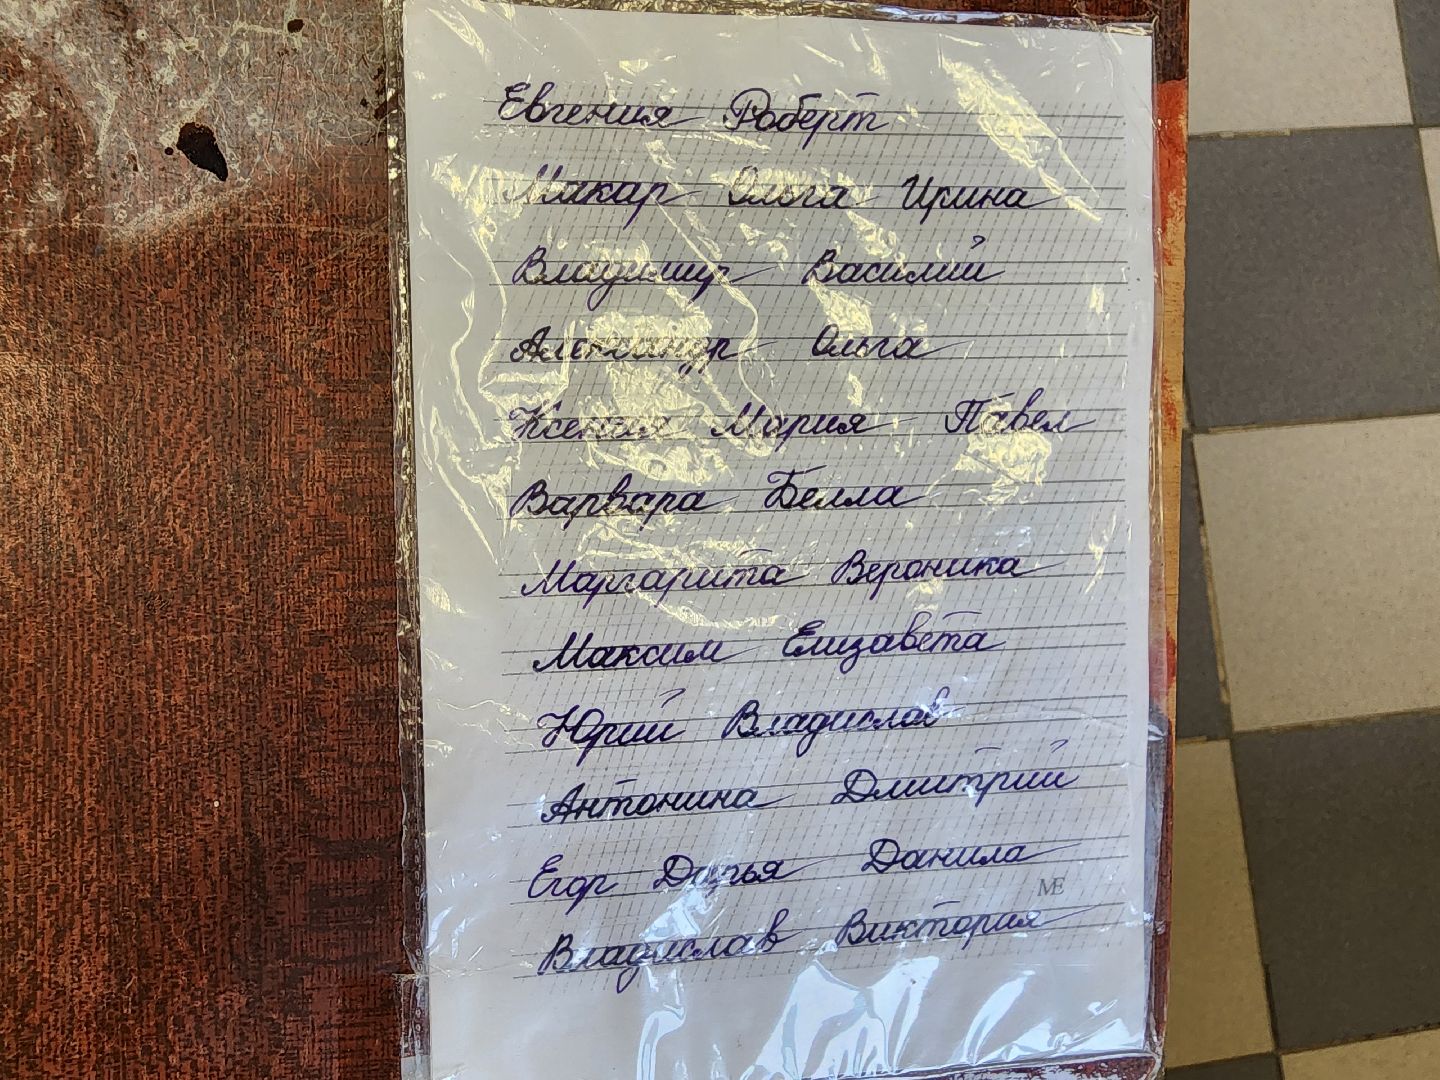 Евгения Роберт
Макар Ольга Ирина
Владимир Василий
Александр Ольга
Ксения Мария Павел
Варвара Белла
Маргарита Вероника
Максим Елизавета
Юрий Владислав
Антонина Дмитрий
Егор Дарья Данила
МЕ
Владислав Виктория